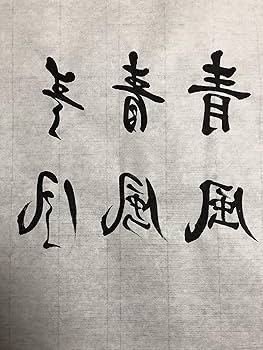 青風
青風
青風